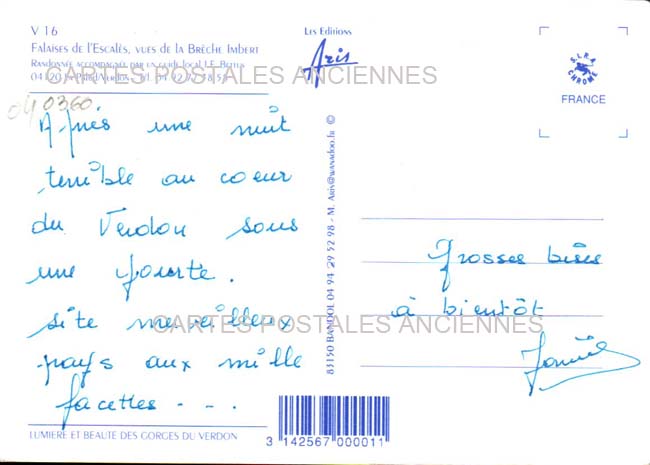 V 16
Falaises de l'Escalès, vues de la Brèche Imbert
Randonnée accompagnée par un guide local J.F.
Les Editions
Aris
S.L.R.A
CHROME
FRANCE
CARTES POSTALES ANCIENNES
040360
Après une nuit
terrible au coeur
du Verdon sous
une
site merveilleux
pays aux mille
facettes - - -
Grosses bises
à bientôt
83150 BANDOL 04 94 29 52 98 - M. Aris@wanadoo.fr ©
CARTES POSTALES ANCIENNES
LUMIERE ET BEAUTE DES GORGES DU VERDON
3 142567 000011